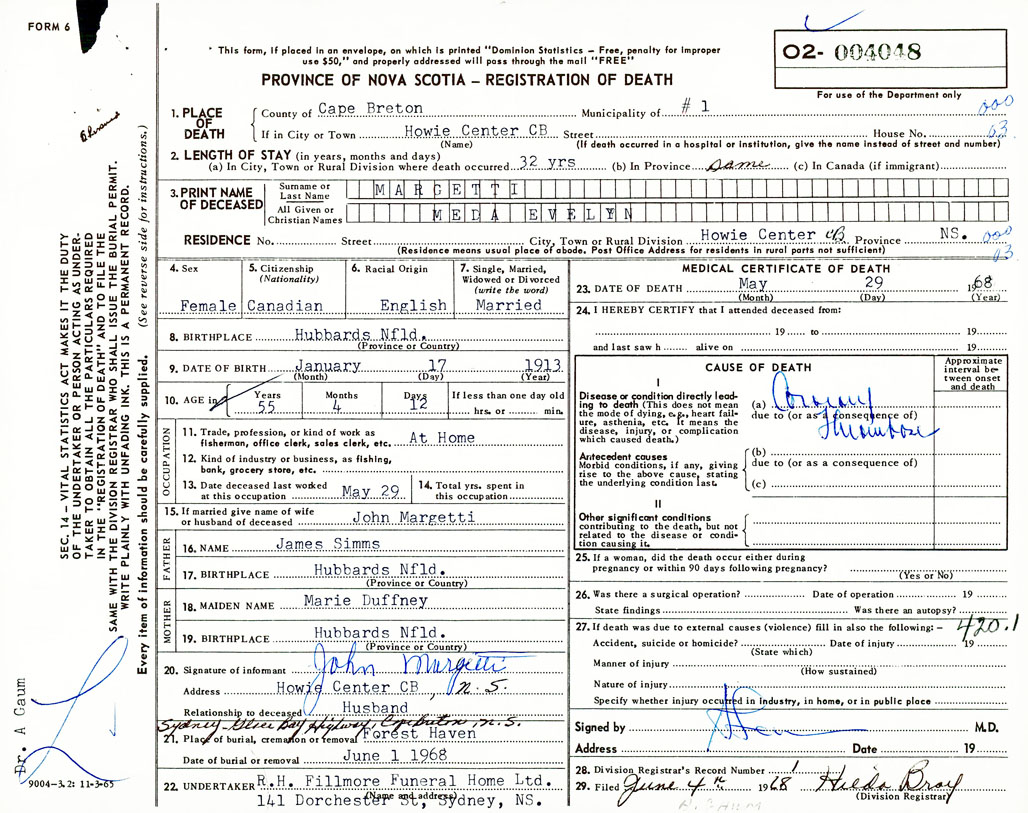 FORM 6
* This form, if placed in an envelope, on which is printed "Dominion Statistics – Free, penalty for improper
use $50," and properly addressed will pass through the mail "FREE"
PROVINCE OF NOVA SCOTIA – REGISTRATION OF DEATH
02- 004048
For use of the Department only
1. PLACE OF DEATH
County of Cape Breton Municipality of # 1 000
If in City or Town Howie Center CB Street House No. 03
(Name) (If death occurred in a hospital or institution, give the name instead of street and number)
2. LENGTH OF STAY (in years, months and days)
(a) In City, Town or Rural Division where death occurred 32 yrs (b) In Province same (c) In Canada (if immigrant)
3. PRINT NAME OF DECEASED
Surname or Last Name MARGETTI
All Given or Christian Names MEDA EVELYN
RESIDENCE No. Street City, Town or Rural Division Howie Center CB Province NS. 000
(Residence means usual place of abode. Post Office Address for residents in rural parts not sufficient) 03
4. Sex Female
5. Citizenship (Nationality) Canadian
6. Racial Origin English
7. Single, Married, Widowed or Divorced (write the word) Married
8. BIRTHPLACE Hubbards Nfld.
(Province or Country)
9. DATE OF BIRTH January 17 1913
(Month) (Day) (Year)
10. AGE in Years 55 Months 4 Days 12 If less than one day old
hrs. or min.
OCCUPATION
11. Trade, profession, or kind of work as
fisherman, office clerk, sales clerk, etc. At Home
12. Kind of industry or business, as fishing,
bank, grocery store, etc.
13. Date deceased last worked
at this occupation May 29
14. Total yrs. spent in
this occupation
15. If married give name of wife
or husband of deceased John Margetti
FATHER
16. NAME James Simms
17. BIRTHPLACE Hubbards Nfld.
(Province or Country)
MOTHER
18. MAIDEN NAME Marie Duffney
19. BIRTHPLACE Hubbards Nfld.
(Province or Country)
20. Signature of informant John Margetti
Address Howie Center CB, N.S.
Relationship to deceased Husband
Sydney-Glace Bay Highway, Cape Breton, N.S.
21. Place of burial, cremation or removal Forest Haven
Date of burial or removal June 1 1968
22. UNDERTAKER R.H. Fillmore Funeral Home Ltd.
(Name and address)
141 Dorchester St, Sydney, NS.
MEDICAL CERTIFICATE OF DEATH
23. DATE OF DEATH May 29 1968
(Month) (Day) (Year)
24. I HEREBY CERTIFY that I attended deceased from:
19 to 19
and last saw h alive on 19
CAUSE OF DEATH
Approximate interval between onset and death
I
Disease or condition directly leading
to death (This does not mean
the mode of dying, e.g., heart failure,
asthenia, etc. It means the
disease, injury, or complication
which caused death.)
(a) Coronary
due to (or as a consequence of)
Thrombosis
Antecedent causes
Morbid conditions, if any, giving
rise to the above cause, stating
the underlying condition last.
(b)
due to (or as a consequence of)
(c)
II
Other significant conditions
contributing to the death, but not
related to the disease or condition
causing it.
25. If a woman, did the death occur either during
pregnancy or within 90 days following pregnancy?
(Yes or No)
26. Was there a surgical operation? Date of operation 19
State findings Was there an autopsy?
27. If death was due to external causes (violence) fill in also the following: – 420.1
Accident, suicide or homicide? Date of injury 19
(State which)
Manner of injury
(How sustained)
Nature of injury
Specify whether injury occurred in Industry, in home, or in public place
Signed by M.D.
Address Date 19
28. Division Registrar's Record Number 1
29. Filed June 4th 1968 Hilda Bray
(Division Registrar)
SEC. 14 – VITAL STATISTICS ACT MAKES IT THE DUTY
OF THE UNDERTAKER OR PERSON ACTING AS UNDER-
TAKER TO OBTAIN ALL THE PARTICULARS REQUIRED
IN THE "REGISTRATION OF DEATH" AND TO FILE THE
SAME WITH THE DIVISION REGISTRAR WHO SHALL ISSUE THE BURIAL PERMIT.
WRITE PLAINLY WITH UNFADING INK. THIS IS A PERMANENT RECORD.
Every item of information should be carefully supplied. (See reverse side for instructions.)
Dr. A Gaum
9004-3.2: 11-3-65